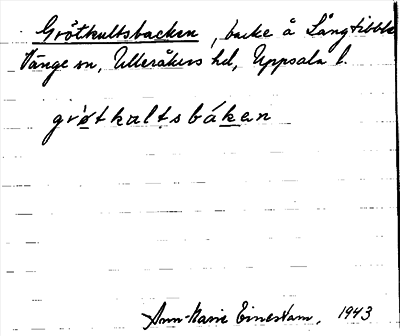 Grötkultsbacken, backe å Långtibble
Vänge sn, Ulleråkers hd, Uppsala l.
grøtkultsbákan
Ann-Marie Einestam. 1943